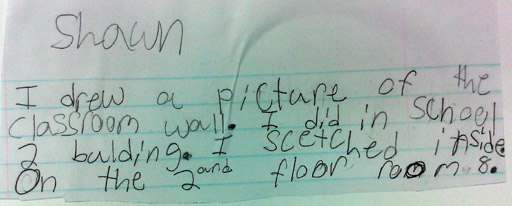 Shawn
I drew a picture of the
classroom wall. I did in school
2 balding. I scetched inside.
On the 2and floor room 8.